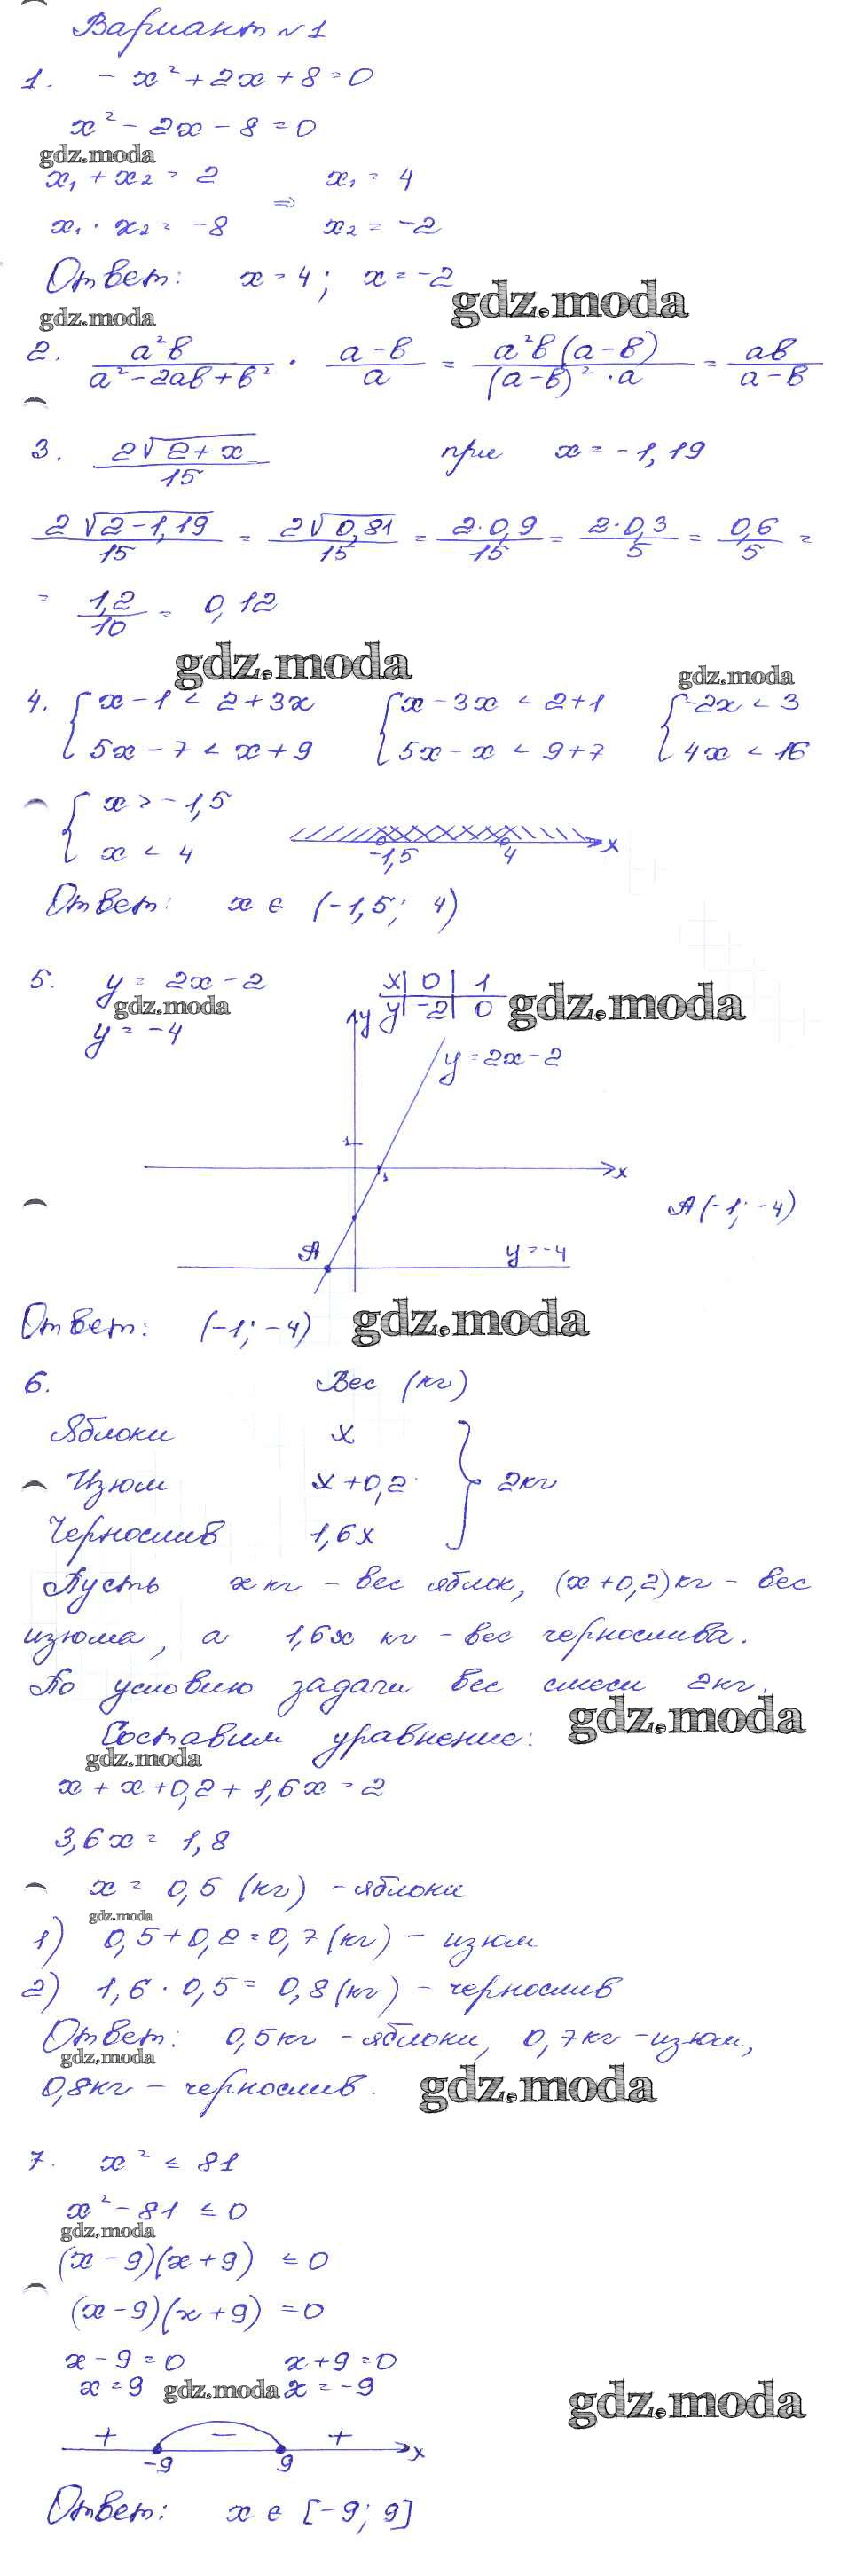 Вариант №1
1. - x² + 2x + 8 = 0
x² - 2x - 8 = 0
gdz.moda
x₁ + x₂ = 2 x₁ = 4
⇒
x₁ · x₂ = -8 x₂ = -2
Ответ: x = 4; x = -2
gdz.moda
gdz.moda
2. a²b/(a² - 2ab + b²) · (a - b)/a = a²b(a - b)/((a - b)² · a) = ab/(a - b)
3. 2√(2 + x)/15 при x = -1,19
2√(2 - 1,19)/15 = 2√(0,81)/15 = 2·0,9/15 = 2·0,3/5 = 0,6/5 =
= 1,2/10 = 0,12
gdz.moda
gdz.moda
4. { x - 1 < 2 + 3x { x - 3x < 2 + 1 { -2x < 3
5x - 7 < x + 9 5x - x < 9 + 7 4x < 16
{ x > -1,5
x < 4
-1,5 4 x
Ответ: x ∈ (-1,5; 4)
5. y = 2x - 2 x | 0 | 1
gdz.moda
y | -2 | 0
gdz.moda
y = -4
y
y = 2x - 2
1
x
1
A (-1; -4)
A y = -4
Ответ: (-1; -4)
gdz.moda
6. Вес (кг)
Яблоки x
Изюм x + 0,2 } 2кг
Чернослив 1,6x
Пусть x кг - вес яблок, (x + 0,2)кг - вес
изюма, а 1,6x кг - вес чернослива.
По условию задачи вес смеси 2кг.
gdz.moda
Составим уравнение:
gdz.moda
x + x + 0,2 + 1,6x = 2
3,6x = 1,8
x = 0,5 (кг) - яблоки
gdz.moda
1) 0,5 + 0,2 = 0,7 (кг) - изюм
2) 1,6 · 0,5 = 0,8 (кг) - чернослив
Ответ: 0,5кг - яблоки, 0,7кг - изюм,
gdz.moda
0,8кг - чернослив.
gdz.moda
7. x² ≤ 81
x² - 81 ≤ 0
gdz.moda
(x - 9)(x + 9) ≤ 0
(x - 9)(x + 9) = 0
x - 9 = 0 x + 9 = 0
x = 9 gdz.moda x = -9
gdz.moda
+ - +
-9 9 x
Ответ: x ∈ [-9; 9]